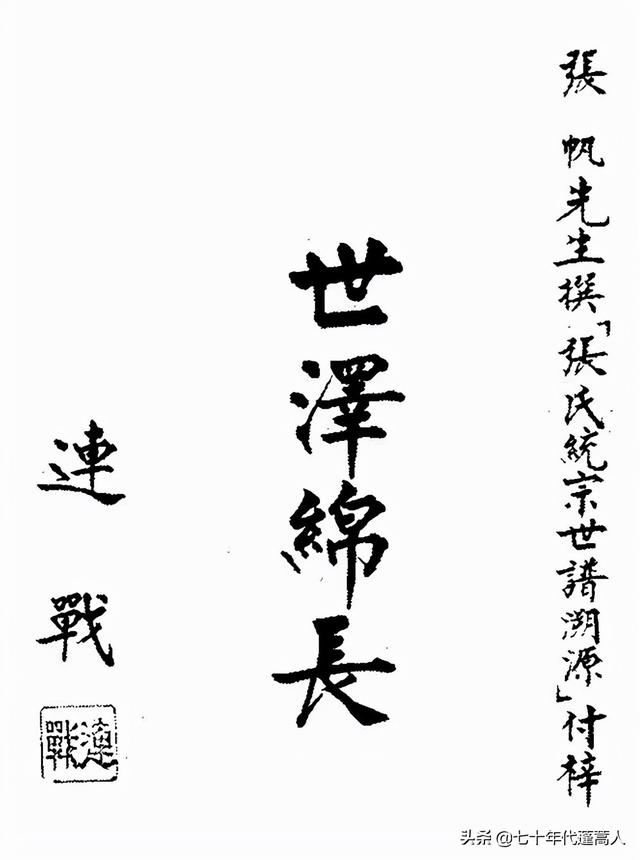 張帆先生撰「張氏統宗世譜溯源」付梓
世澤綿長
連戰
連戰
头条 @七十年代蓬蒿人